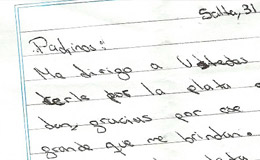 Salta, 31
Padrinos:
Me dirijo a Ustedes
por la plata
dan, gracias por ese
grande que me brindan.